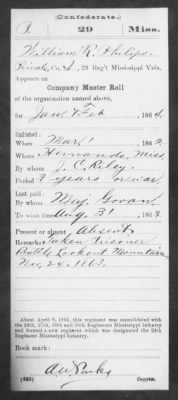 (Confederate.)
P. 29 Miss.
William R. Philips
Private, Co. I, 29 Reg't Mississippi Vols.
Appears on
Company Muster Roll
of the organization named above,
for Jan & Feb 1864.
Enlisted:
When Mar 1 1862.
Where Hernando, Miss.
By whom J. C. Riley
Period 3 years or war.
Last paid:
By whom Maj. Govan
To what time Aug. 31 1863.
Present or absent Absent
Remarks: Taken Prisoner
Battle Lookout Mountain
Nov, 24, 1863.
About April 9, 1865, this regiment was consolidated with
the 24th, 27th, 30th and 34th Regiments Mississippi Infantry
and formed a new regiment which was designated the 24th
Mississippi Infantry.
Book mark:
(642)
Copyist.